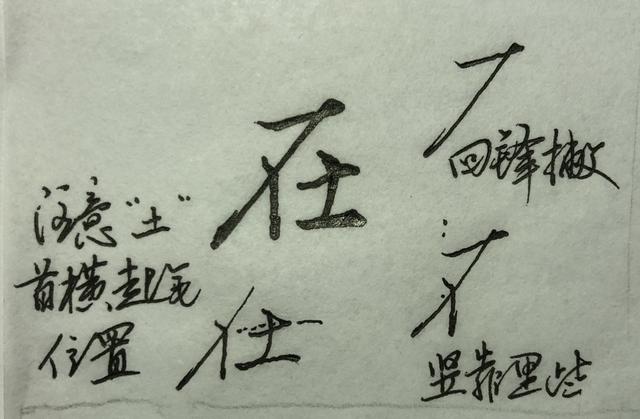 在
注意"土"
首横起笔
位置
回锋撇
竖靠里些